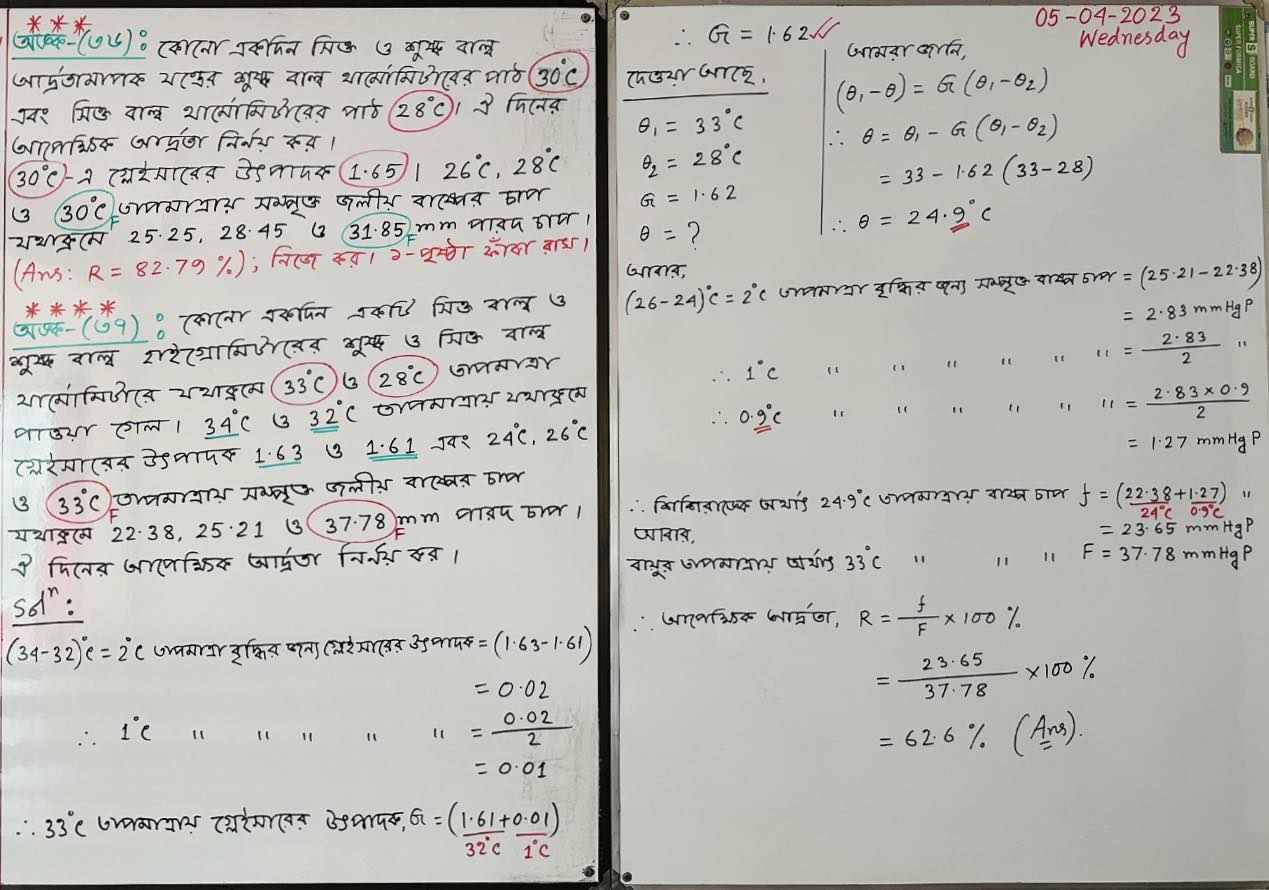 অঙ্ক-(৩৬): কোনো একদিন সিক্ত ও শুষ্ক বাল্ব
আর্দ্রতামাপক যন্ত্রের শুষ্ক বাল্ব থার্মোমিটারের পাঠ 30°C
এবং সিক্ত বাল্ব থার্মোমিটারের পাঠ 28°C। ঐ দিনের
আপেক্ষিক আর্দ্রতা নির্নয় কর।
30°C-এ গ্লেইসারের উৎপাদক 1.65। 26°C, 28°C
ও 30°C তাপমাত্রায় সম্পৃক্ত জলীয় বাষ্পের চাপ
যথাক্রমে 25.25, 28.45 ও 31.85 mm পারদ চাপ।
F F
(Ans: R = 82.79 %); নিজে কর। ১-পৃষ্ঠা ফাঁকা রাখ।
অঙ্ক-(৩৭): কোনো একদিন একটি সিক্ত বাল্ব ও
শুষ্ক বাল্ব হাইগ্রোমিটারের শুষ্ক ও সিক্ত বাল্ব
থার্মোমিটারে যথাক্রমে 33°C ও 28°C তাপমাত্রা
পাওয়া গেল। 34°C ও 32°C তাপমাত্রায় যথাক্রমে
গ্লেইসারের উৎপাদক 1.63 ও 1.61 এবং 24°C, 26°C
ও 33°C তাপমাত্রায় সম্পৃক্ত জলীয় বাষ্পের চাপ
F
যথাক্রমে 22.38, 25.21 ও 37.78 mm পারদ চাপ।
F
ঐ দিনের আপেক্ষিক আর্দ্রতা নির্নয় কর।
Solⁿ:
(34-32)°C = 2°C তাপমাত্রা বৃদ্ধির জন্য গ্লেইসারের উৎপাদক = (1.63-1.61)
= 0.02
∴ 1°C " " " " " = 0.02/2
= 0.01
∴ 33°C তাপমাত্রায় গ্লেইসারের উৎপাদক, G = (1.61+0.01)
32°C 1°C
05-04-2023
Wednesday
SUPER S BOARD
SUPER FORMICA
∴ G = 1.62
দেওয়া আছে,
θ₁ = 33°C
θ₂ = 28°C
G = 1.62
θ = ?
আমরা জানি,
(θ₁-θ) = G (θ₁-θ₂)
∴ θ = θ₁ - G (θ₁-θ₂)
= 33 - 1.62 (33-28)
∴ θ = 24.9°C
আবার,
(26-24)°C = 2°C তাপমাত্রা বৃদ্ধির জন্য সম্পৃক্ত বাষ্প চাপ = (25.21-22.38)
= 2.83 mmHgP
∴ 1°C " " " " " " = 2.83/2 "
∴ 0.9°C " " " " " " = 2.83 × 0.9/2
= 1.27 mmHgP
∴ শিশিরাঙ্কে অর্থাৎ 24.9°C তাপমাত্রায় বাষ্প চাপ f = (22.38+1.27) "
24°C 0.9°C
= 23.65 mmHgP
আবার,
বায়ুর তাপমাত্রায় অর্থাৎ 33°C " " " F = 37.78 mmHgP
∴ আপেক্ষিক আর্দ্রতা, R = f/F × 100 %
= 23.65/37.78 × 100 %
= 62.6 % (Ans).